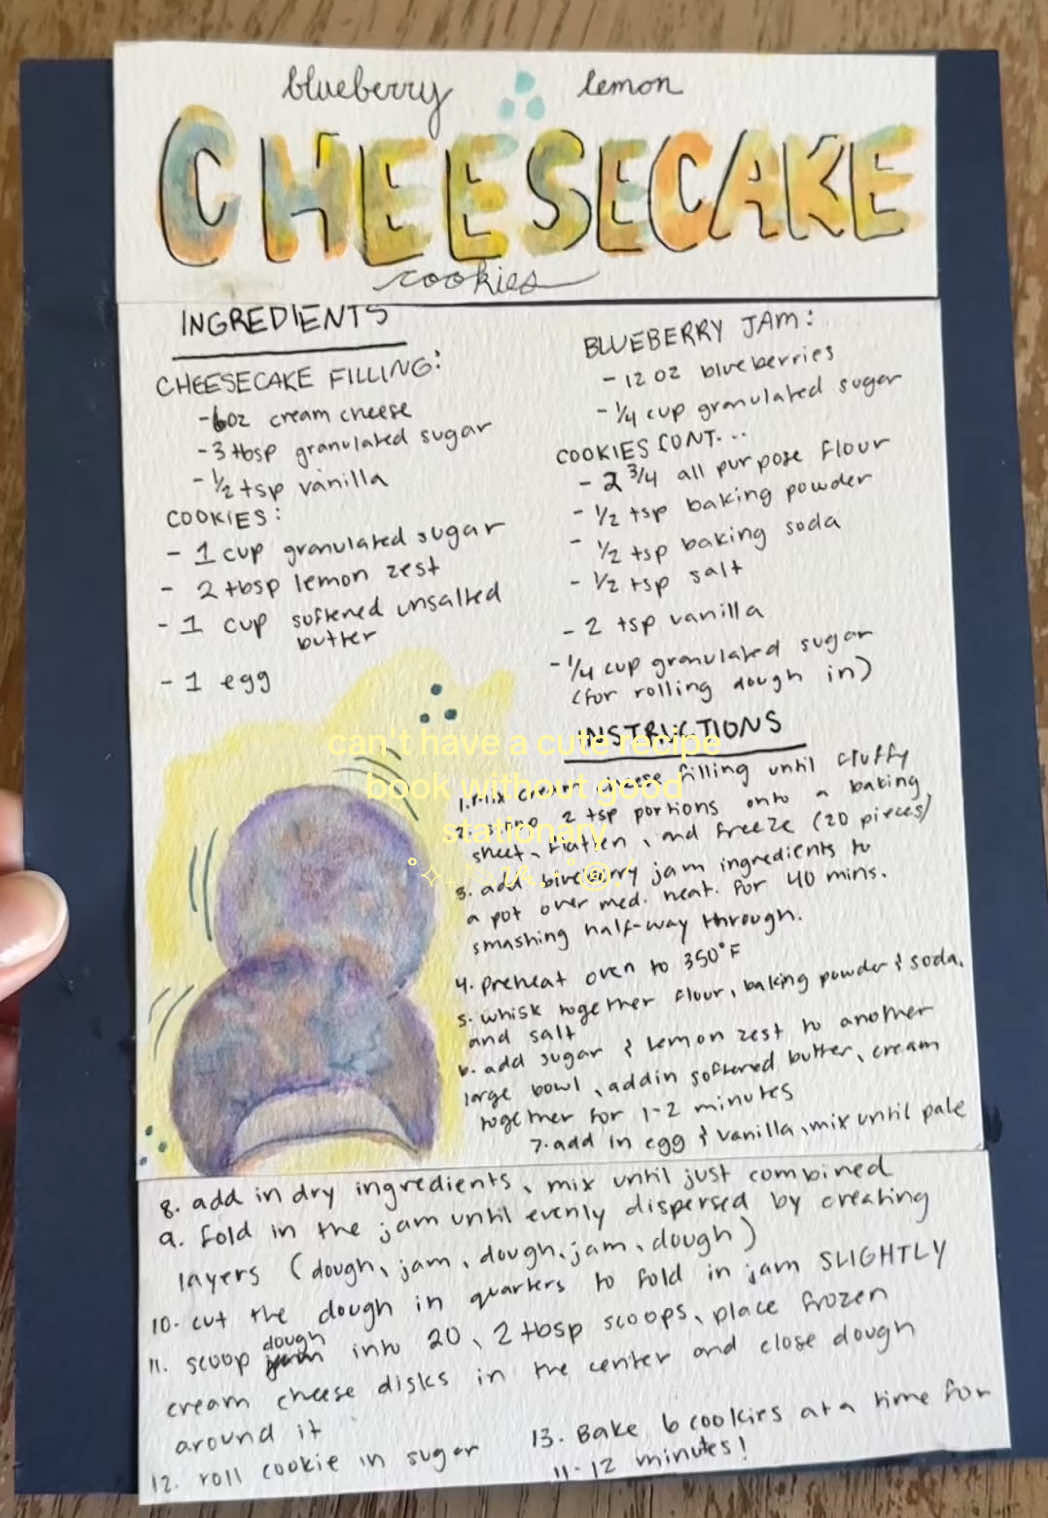 blueberry lemon
CHEESECAKE
cookies
INGREDIENTS
CHEESECAKE FILLING:
- 6oz cream cheese
- 3 tbsp granulated sugar
- 1/2 tsp vanilla
COOKIES:
- 1 cup granulated sugar
- 2 tbsp lemon zest
- 1 cup softened unsalted
butter
- 1 egg
BLUEBERRY JAM:
- 12 oz blueberries
- 1/4 cup granulated sugar
COOKIES CONT...
- 2 3/4 all purpose flour
- 1/2 tsp baking powder
- 1/2 tsp baking soda
- 1/2 tsp salt
- 2 tsp vanilla
- 1/4 cup granulated sugar
(for rolling dough in)
INSTRUCTIONS
1. Mix cheese filling until fluffy
2. 2 tsp portions onto a baking
sheet, flatten, and freeze (20 pieces)
3. add blueberry jam ingredients to
a pot over med. heat. for 40 mins.
smashing half-way through.
4. preheat oven to 350°F
5. whisk together flour, baking powder & soda,
and salt
6. add sugar & lemon zest to another
large bowl, add in softened butter, cream
together for 1-2 minutes
7. add in egg & vanilla, mix until pale
8. add in dry ingredients, mix until just combined
9. fold in the jam until evenly dispersed by creating
layers (dough, jam, dough, jam, dough)
10. cut the dough in quarters to fold in jam SLIGHTLY
11. scoop dough into 20, 2 tbsp scoops, place frozen
cream cheese disks in the center and close dough
around it
12. roll cookie in sugar
13. Bake 6 cookies at a time for
11-12 minutes!
can't have a cute recipe
book without good
stationary